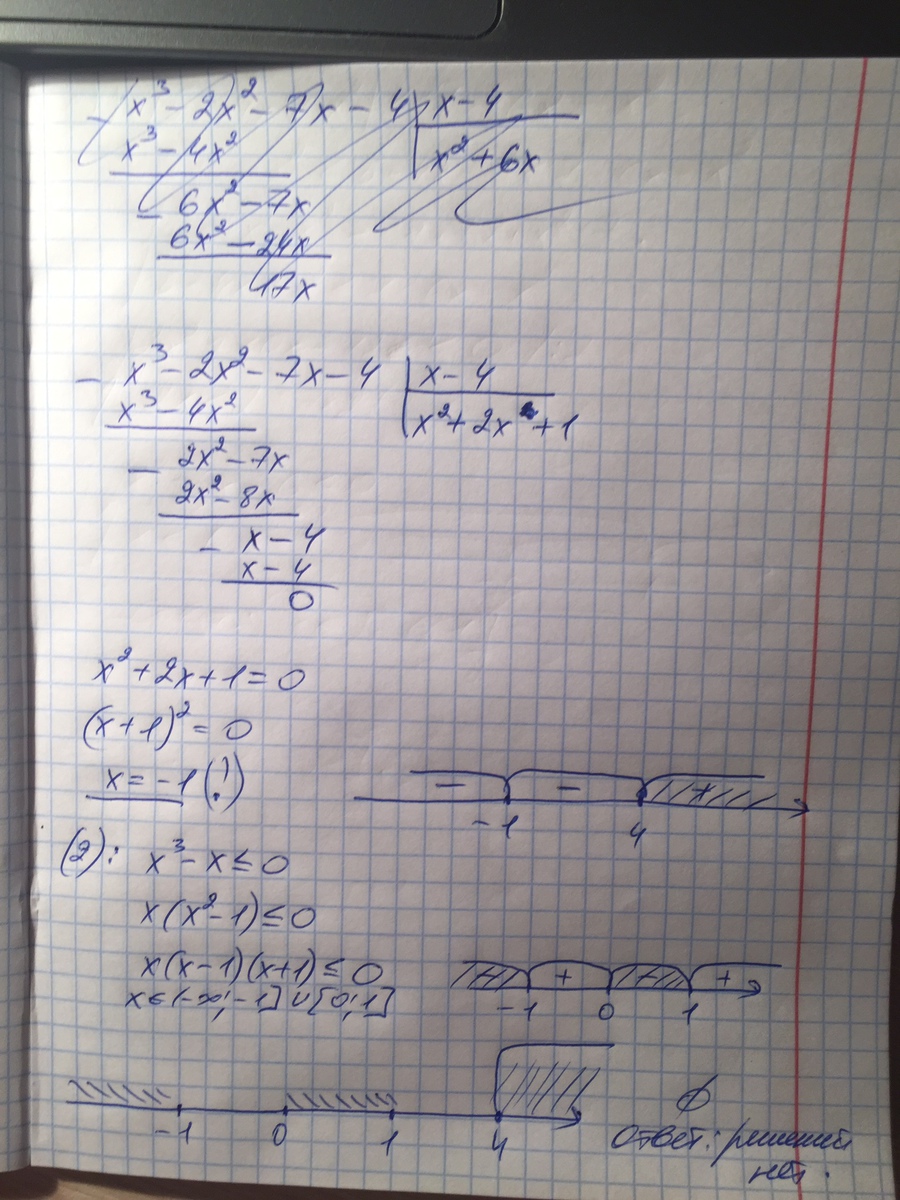 x³ - 2x² - 7x - 4 | x - 4
x³ - 4x² | x² + 6x
- 6x² - 7x
6x² - 24x
17x
- x³ - 2x² - 7x - 4 | x - 4
x³ - 4x² | x² + 2x + 1
- 2x² - 7x
2x² - 8x
- x - 4
x - 4
0
x² + 2x + 1 = 0
(x + 1)² = 0
x = -1 (!)
- - +
-1 4
(2): x³ - x ≤ 0
x(x² - 1) ≤ 0
x(x - 1)(x + 1) ≤ 0
- + - +
x ∈ (-∞; -1] ∪ [0; 1]
-1 0 1
-1 0 1 4
∅
Ответ: решений
нет.